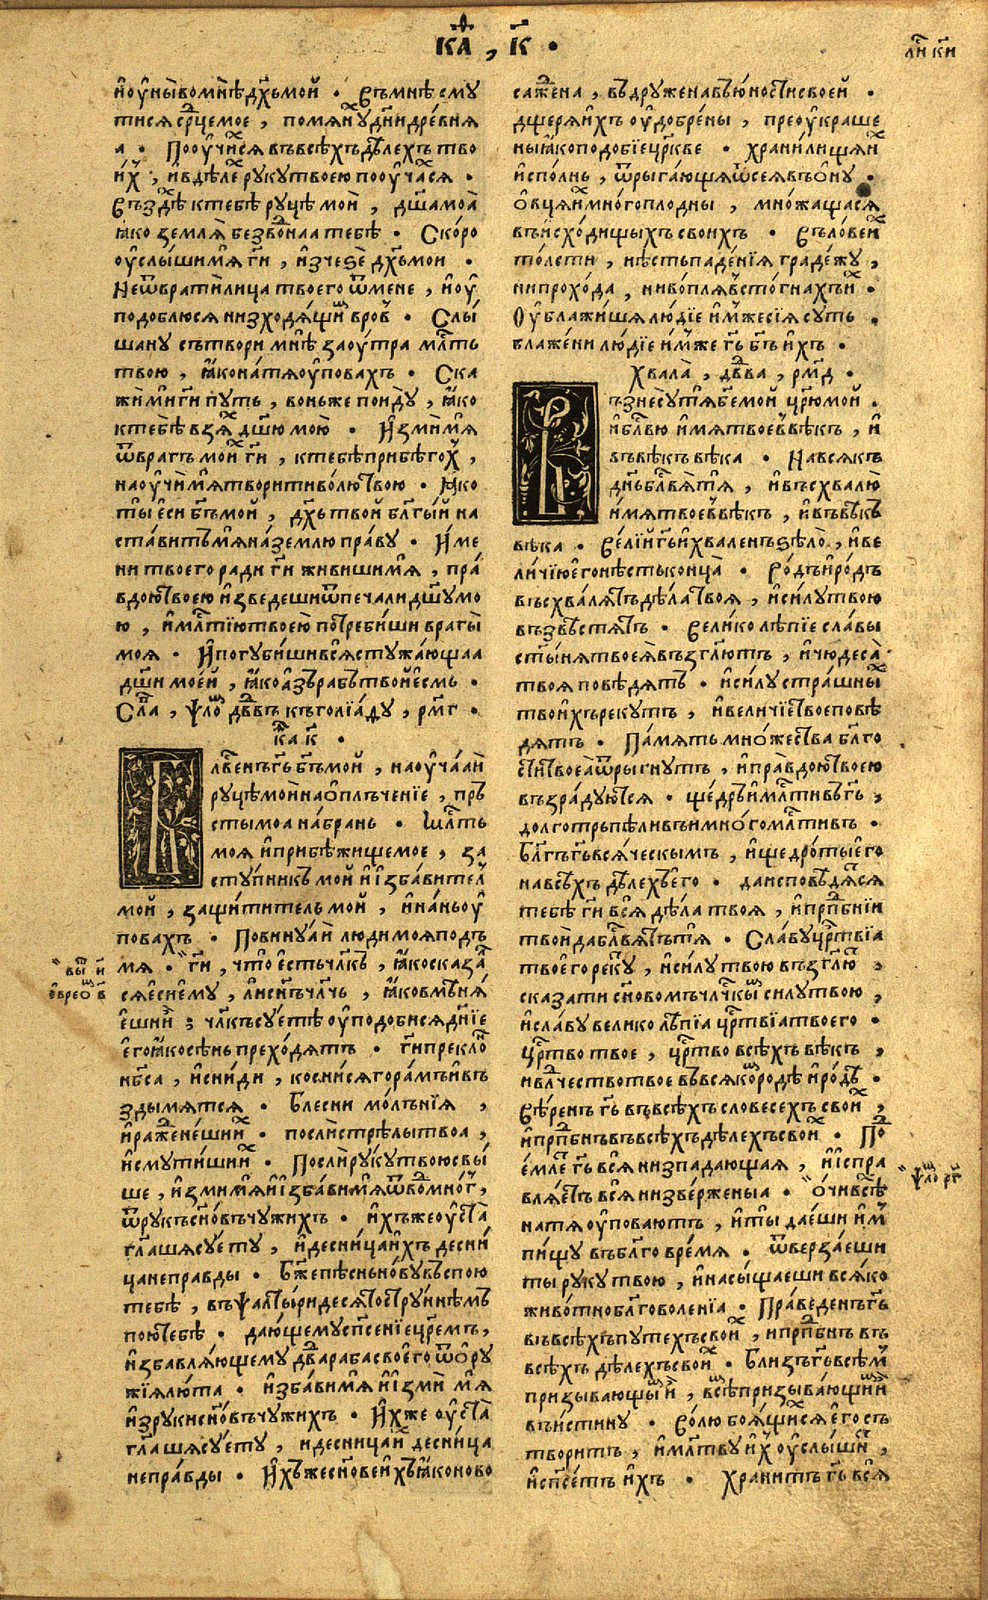 каѳ , к҃ .
ли к҃и
и҆оу҆ны̀ вомнѣ дх҃ъ мой . Въ мнѣ сму
тися ср҇це мое , помянух дни древняꙗ
а . Поѹчихся въ всѣхъ дѣлехъ тво
их , и҆ в дѣлех руку твоею поѹчахся .
Въздѣх к тебѣ руцѣ мой , дш҃а моꙗ
ꙗко земля безводна тебѣ . Скоро
оу҆слыши мя г҃и , и҆счезе дх҃ъ мои .
Не ѿврати лица твоего ѿ мене , и҆ оу҆
подоблюся низходящим в ров . Слы
шану сътвори мнѣ заоутра млс҇ть
твою , ꙗко на тя оу҆повахъ . Ска
жи ми г҃и путь , вон же поиду , ꙗко
к тебѣ взях дш҃ю мою . И҆зми мя
ѿ врагъ моих г҃и , к тебѣ прибѣгох ,
наоу҆чи мя творити волю твою . Ꙗко
ты еси б҃гъ мой , дх҃ъ твой бл҃гый на
ставитъ мя на землю праву . И҆ме
ни твоего ради г҃и живиши мя , пра
вдою твоею и҆зведеши ѿ печали дш҃у мо
ю , и҆ млс҇тїю твоею потребиши враги
моя . И҆ погубиши вся стужающаа
дш҃и моей , ꙗко аз рабъ твой есмь .
Сла , ѱало дв҃двъ къ голїаду , рм҃г .
к҃а к҃ .
Блв҃енъ г҃ь б҃гъ мой , наоучаай
руцѣ мои на ополъченїе , пръ
сты моа на брань . Млс҇ть
моя и҆ прибѣжище мое , за
ступникъ мой и҆ и҆збавител
мой , защититель мой , и҆ нань оу҆
повахъ . Повинуай люди моя подъ
мя . г҃и , что есть чл҃къ , ꙗко сказа
ся еси ему , ли сн҃ъ чл҃чь , ꙗко вмѣня
еши и ; чл҃къ суетѣ оу҆подобися дн҃їе
его ꙗко сѣнь преходятъ . г҃и преклони
нб҃са , и҆ сниди , коснися горамъ и҆ въ
здымятся . Блесни молънїя ,
и҆ раженеши их . посли стрѣлы твоа ,
и҆ смутиши их . Посли руку твою свы
ше , и҆зми мя и҆ и҆збави мя ѿ вод мног ,
ѿ рукъ сн҃овъ чужихъ . и҆хъ же оуста
гл҃аша суету , и҆ десница ихъ десни
ца неправды . Бж҃е пѣснь нову въспою
тебѣ , въ ѱалтыри десятострунѣмъ
пою тебѣ . дающему сп҃сенїе цр҃емъ ,
и҆збавляющему дв҃да раба своего ѿ ору
жїя люта . и҆збави мя и҆ и҆зми мя
и҆з руки сн҃овъ чужихъ . И҆х же оуста
гл҃аша суету , и҆ десница их десница
неправды . И҆хъ же сн҃ове ихъ ꙗко ново
саждена , въдружена въ юности своей .
дщеря ихъ оу҆добрены , преоукраше
ны ꙗко подобїе цр҃кве . хранилища их
и҆сполнь , ѿрыгающя ѿ сея в ону .
Овця их многоплодны , множащася
въ и҆сходищыхъ своихъ . Въловеих
толсти , нѣсть паденїя градежу ,
ни прохода , ни вопля въ стогнахъ их .
Оу҆блажишя людїе им же сїя суть .
блажени людїе им же г҃ь б҃гъ ихъ .
Хвала , дв҃да , рм҃д .
Възнесу тя б҃же мой цр҃ю мой .
и҆ блв҃ю имя твое в вѣкъ , и҆
въ вѣкъ вѣка . На всякъ
дн҃ь блв҃я тя , и҆ въсхвалю
и҆мя твое в вѣкъ , и҆ въ вѣкъ
вѣка . Велїй г҃ь и҆ хваленъ ѕѣло , и҆ ве
личїю его нѣсть конца . Родъ и҆ родъ
въсхвалятъ дѣла твоя , и҆ силу твою
възвѣстятъ . Великолѣпїе славы
ст҃ыня твоея възгл҃ютъ , и҆ чюдеса
твоя повѣдятъ . и҆ силу страшных
твоихъ рекутъ , и҆ величїе твое повѣ
дятъ . Память множества бл҃го
сти твоеа ѿрыгнутъ , и҆ правдою твоею
възрадуются . щедръ и҆ млс҇тивъ г҃ь ,
долготрьпѣливъ и҆ многомлс҇тивъ .
Бл҃гъ г҃ь всяческымъ , и҆ щедроты его
на всѣхъ дѣлехъ его . да исповѣдятся
тебѣ г҃и вся дѣла твоя , и҆ прп҃бнїи
твой да блв҃ятъ тя . Славу цр҇твїа
твоего рекут , и҆ силу твою възгл҃ют ,
сказати сн҃овомъ чл҃чкым силу твою ,
и҆ славу великолѣпїа цр҇твїа твоего .
цр҇тво твое , цр҇тво всѣхъ вѣкъ ,
и҆ влд҇чество твое въ всяком родѣ и҆ родѣ .
Вѣренъ г҃ь въ всѣхъ словесехъ своих ,
и҆ прп҃бнъ въ всѣхъ дѣлехъ своих . Под
емлет г҃ь вся низпадающая , и҆ исправ
вляетъ вся низверженыа . Очи всѣх
на тя оу҆повають , и҆ ты даеши им
пищу въ бл҃го время . ѿверзаеши
ты руку твою , и҆ насыщаеши всяко
животно бл҃говоленїа . Праведенъ г҃ь
въ всѣхъ путехъ своих , и҆ прп҃бнъ въ
всѣхъ дѣлехъ своих . Близъ г҃ь всѣм
призывающым и , всѣм призывающим и
въ истину . Волю боящихся его съ
творитъ , и҆ млт҃ву их оу҆слышит ,
и҆ сп҃сетъ ихъ . Хранитъ г҃ь вся